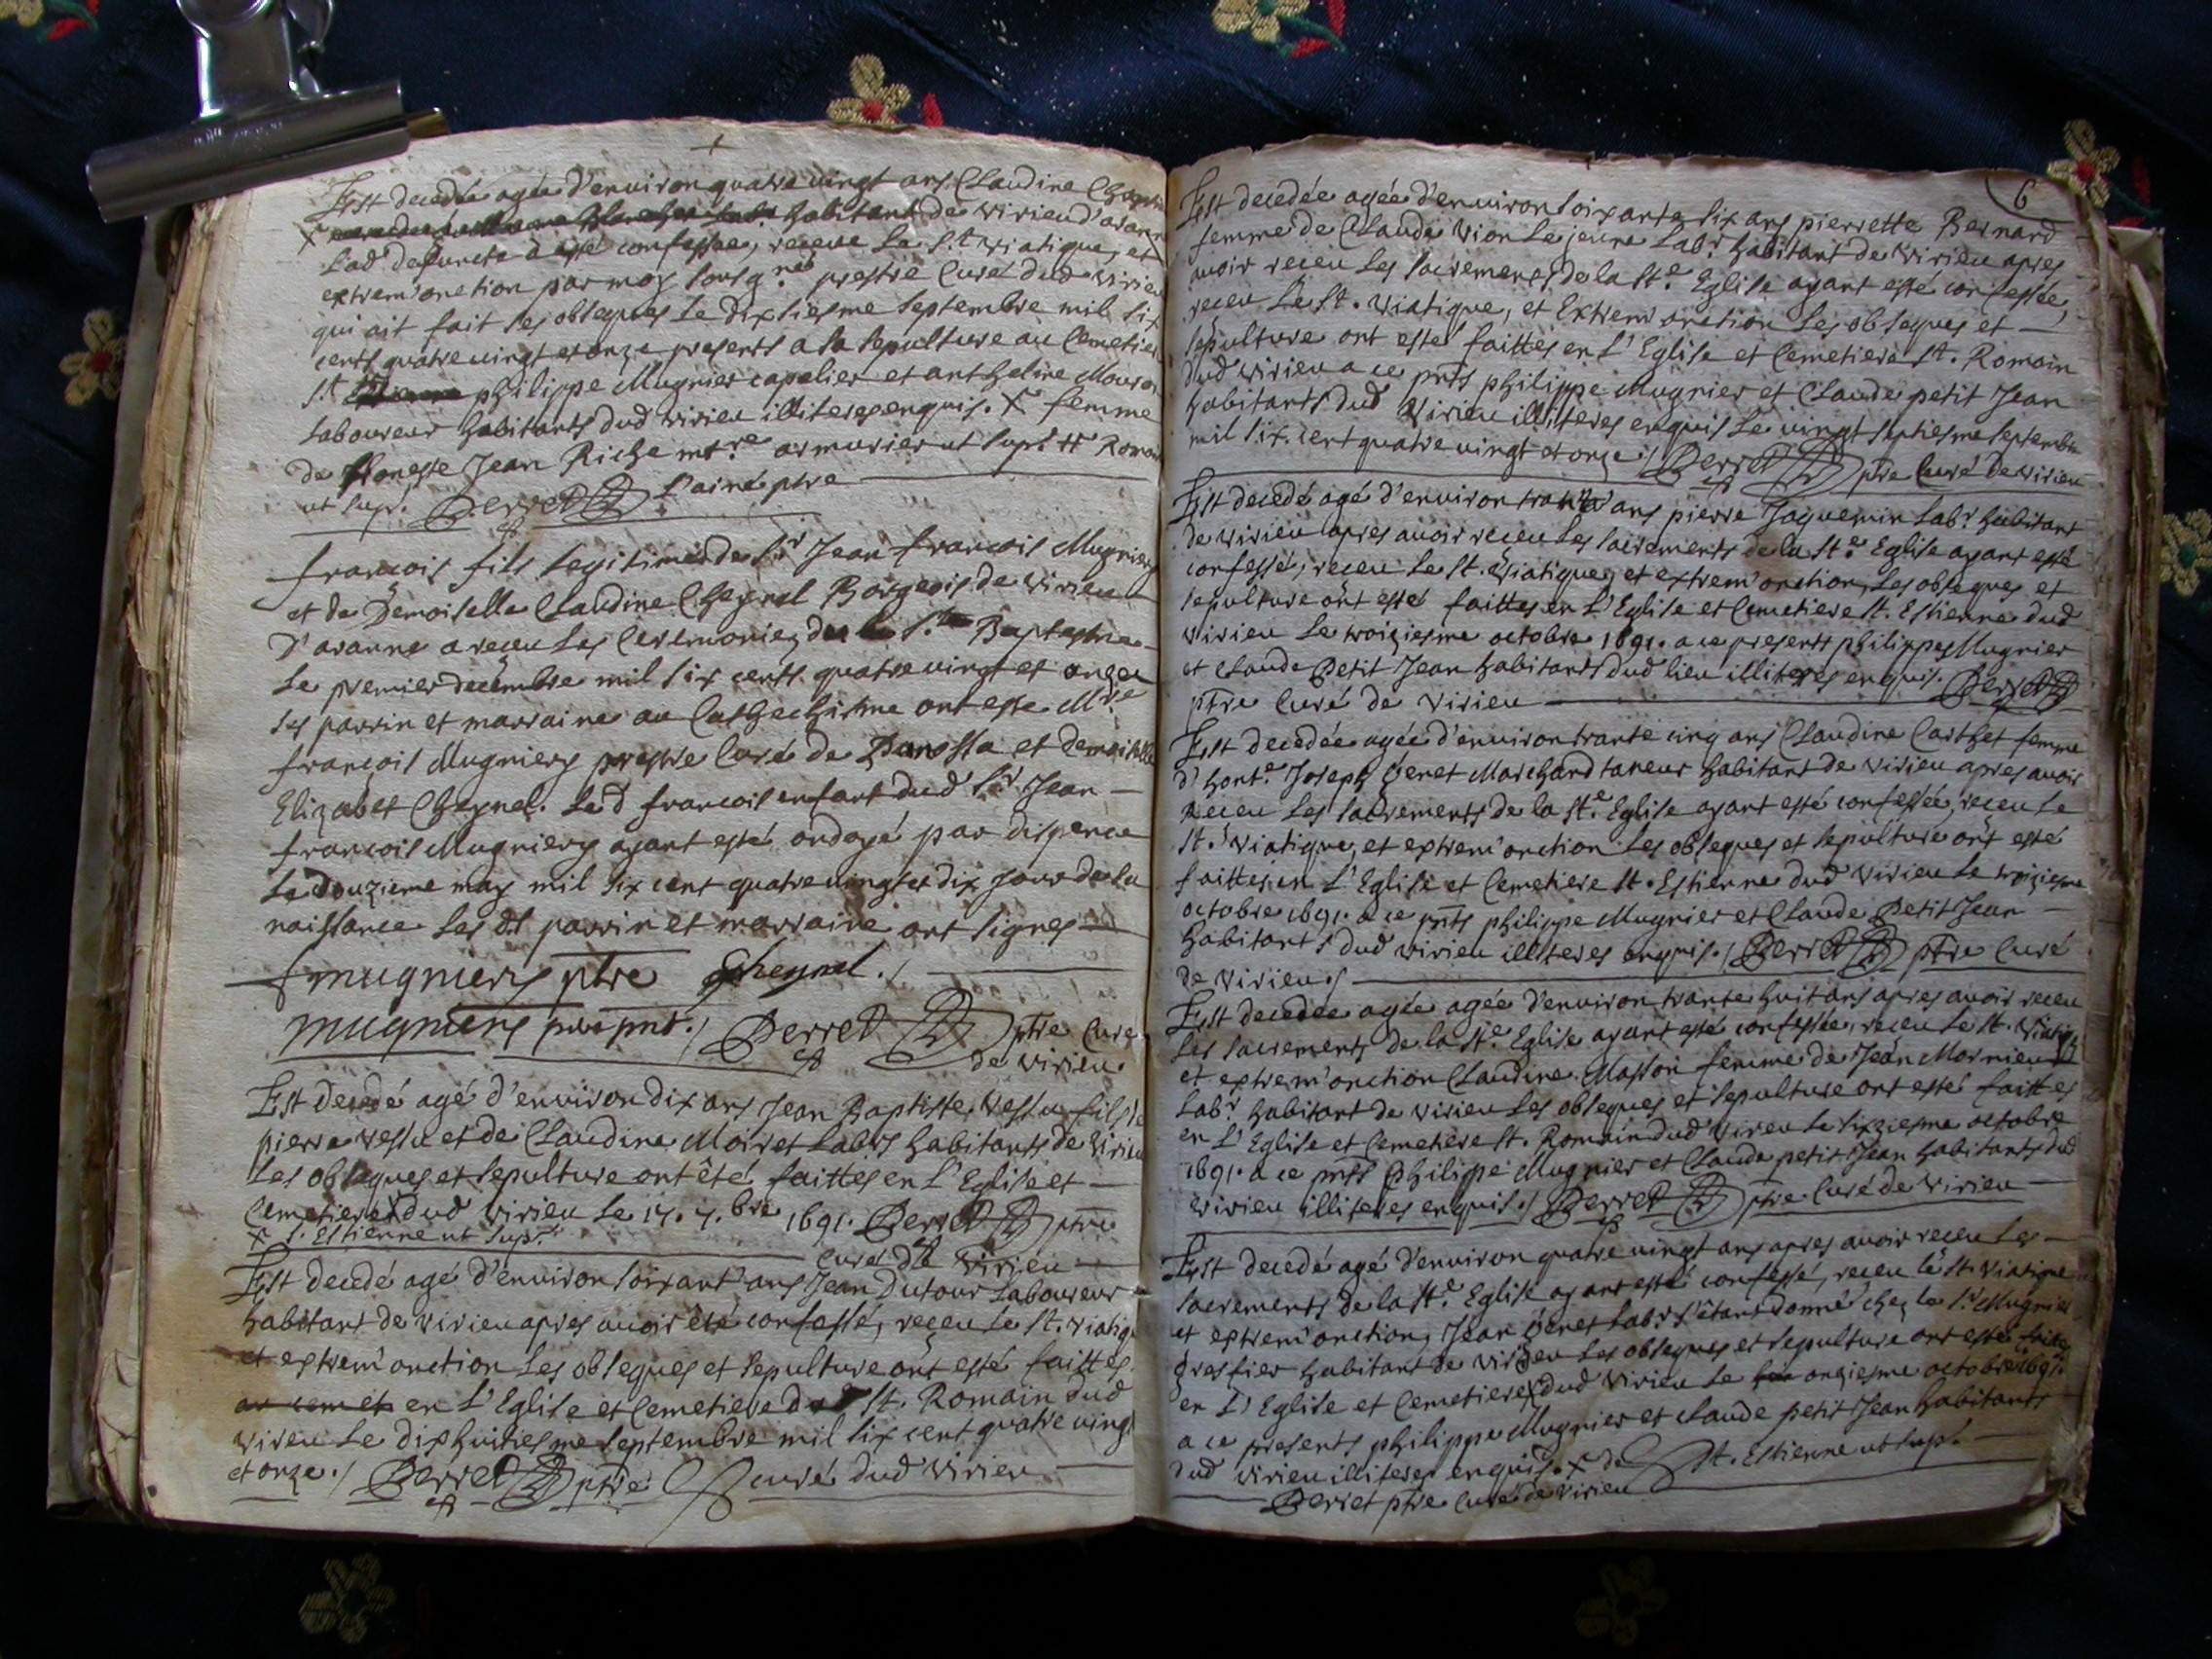 Est decedée agée d'environ quatre vingt ans Claudine
habitant de virieu d'
Lad defuncte a esté confessée, receue Le S.t viatique, et
extrem'onction par moy sousg.né prestre Curé dud virieu
qui ait fait ses obseques Le dixsiesme septembre mil six
cents quatre vingt et onze presents a la sepulture au Cemetiere
S.t philippe Mugnier capelier et anthelme
Laboureur habitants dud virieu illiteres enquis. X femme
de Honeste Jean Riche m.re armurier ut sup.a # Romain
ut sup.a Perret L'ainé ptre
francois fils Legitime de S.r Jean francois Mugniery
et de Demoiselle Claudine Cheynel Borgeois de virieu
D'avanne a receu Les Ceremonies du S.t Baptesme
Le premier decembre mil six cents quatre vingt et onze
ses parrin et marraine au Cathechisme ont esté M.re
françois Mugniery prestre Curé de et demoiselle
Elizabet Cheynel. Led francois enfant dud S.r Jean
francois Mugniery ayant esté ondoyé par dispence
Le douzieme may mil six cent quatre vingt et dix jour de la
naissance Les d.t parrin et marraine ont signes
f mugniery ptre Cheynel.
mugniery pnt. Perret ptre Curé
de virieu.
Est decedé agé d'environ dix ans Jean Baptiste vestu fils de
pierre vestu et de Claudine Moiret Lab.rs habitants de virieu
Les obseques et sepulture ont été faittes en L'Eglise et
Cemetiere X dud virieu Le 17. 7.bre 1691. Perret ptre
X S. Estienne ut sup.a Curé de virieu
Est decedé agé d'environ soixant'ans Jean Dutour Laboureur
habitant de virieu apres avoir été confessé, receu Le St. viatiq
et extrem'onction Les obseques et sepulture ont esté faittes
au cemet en L'Eglise et Cemetiere St. Romain dud
virieu Le dixhuitiesme septembre mil six cent quatre vingt
et onze. Perret ptre curé dud virieu
6
Est decedée agée d'environ soixante six ans pierrette Bernard
femme de Claude vion Le jeune Lab.r habitant de virieu apres
avoir receu Les sacrements de la St.e Eglise ayant esté confessée,
receu Le St. viatique, et Extrem'onction Les obseques et
sepulture ont esté faittes en L'Eglise et Cemetiere St. Romain
dud virieu a ce pnts philippe Mugnier et Claude petit Jean
habitants dud virieu illiteres enquis Le vingt septiesme septembre
mil six. cent quatre vingt et onze Perret ptre Curé de virieu
Est decedé agé d'environ trante ans pierre Jaquemin Lab.r habitant
de virieu apres avoir receu Les sacrements de la St.e Eglise ayant esté
confessé, receu Le St. viatique, et extrem'onction, Les obseques et
sepulture ont esté faittes en L'Eglise et Cemetiere St. Estienne dud
virieu Le troiziesme octobre 1691. a ce presents philippe Mugnier
et Claude Petit Jean habitants dud lieu illiteres enquis. Perret
ptre Curé de virieu
Est decedée agée d'environ trante cinq ans Claudine Carthet femme
d'hont.e Joseph genet Marchand taneur habitant de virieu apres avoir
Receu Les sacrements de la St.e Eglise ayant esté confessée, receu Le
St. viatique, et extrem'onction Les obseques et sepulture ont esté
faittes en L'Eglise et Cemetiere St. Estienne dud virieu Le troiziesme
octobre 1691. a ce pnts philippe Mugnier et Claude Petit Jean
habitants dud virieu illiteres enquis. Perret ptre Curé
de virieu
Est decedée agée agée d'environ trante huit ans apres avoir receu
Les sacrements de la St.e Eglise ayant esté confessée, receu Le St. viatiq
et extrem'onction Claudine Masson femme de Jean Mornieu
Lab.r habitant de virieu Les obseques et sepulture ont esté faittes
en L'Eglise et Cemetiere St. Romain dud virieu Le sixziesme octobre
1691. a ce pnts philippe Mugnier et Claude petit Jean habitants dud
virieu illiteres enquis. Perret ptre Curé de virieu
Est decedé agé d'environ quatre vingt ans apres avoir receu Les
sacrements de la St.e Eglise ayant esté confessé, receu le St. viatique
et extrem'onction, Jean genet Lab.r s'étant donné chez le S.r Mugnier
greffier habitant de virieu Les obseques et sepulture ont esté faites
en L'Eglise et Cemetiere X dud virieu Le onziesme octobre 1691.
a ce presents philippe Mugnier et Claude petit Jean habitants
dud virieu illiteres enquis. X de St. Estienne ut sup.a
Perret ptre Curé de virieu